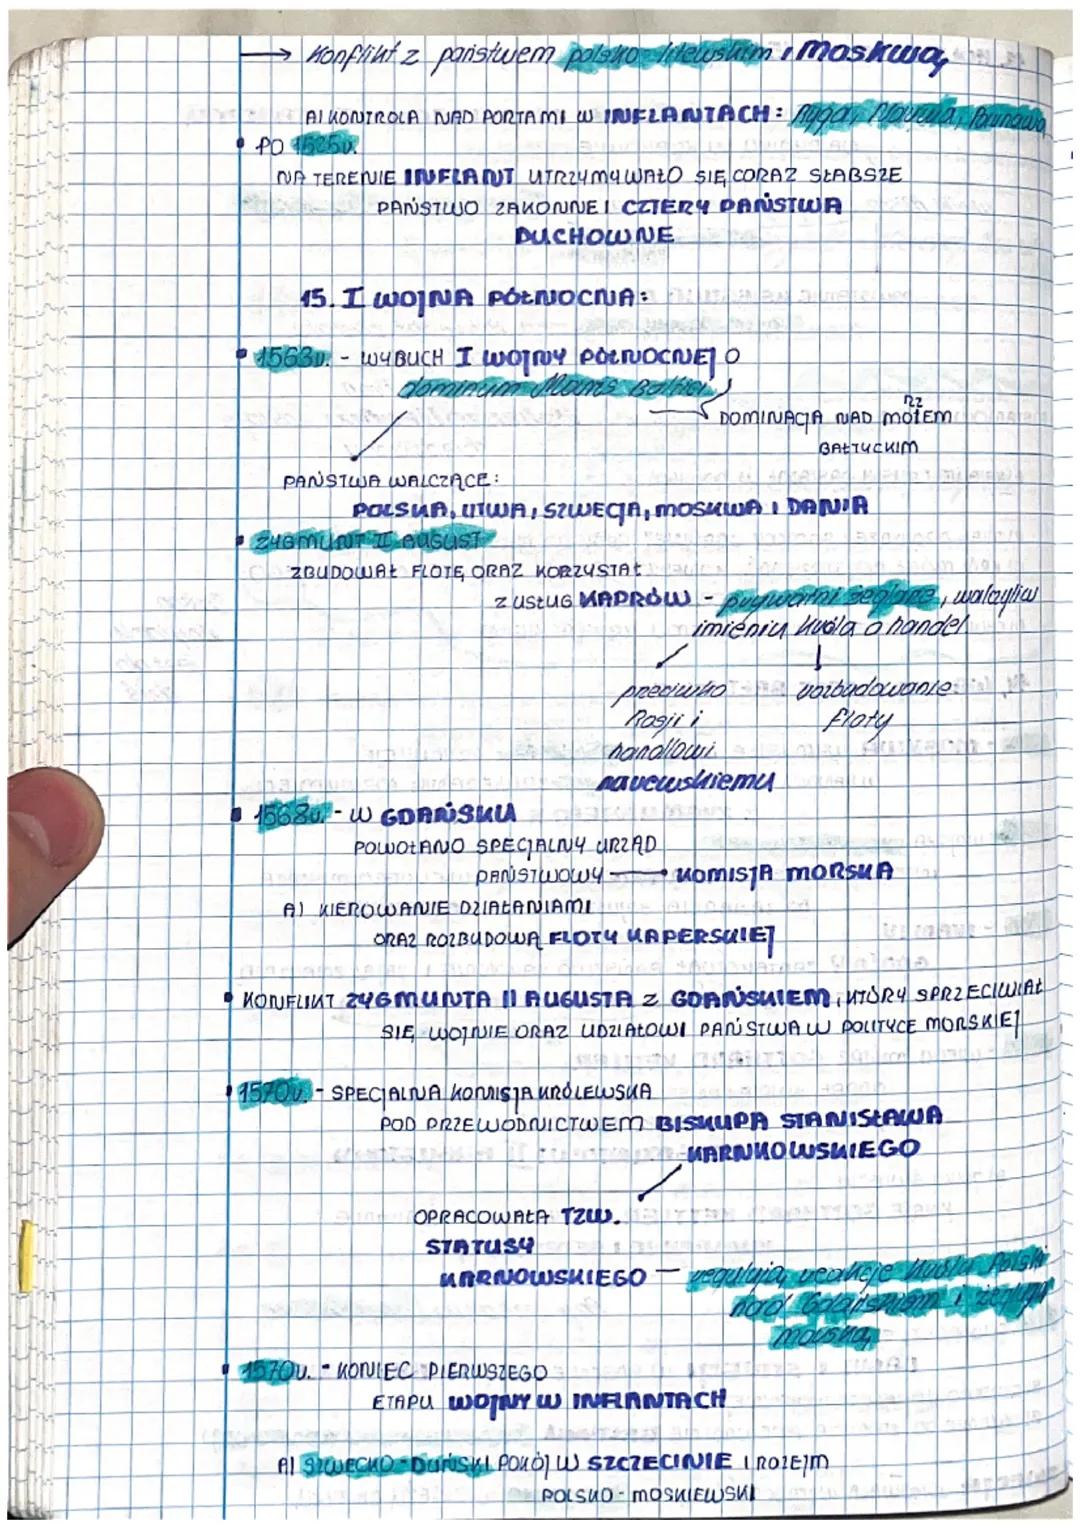 → Konflikt z państwem polsko-litewskim i Moskwą
A) KONTROLA NAD PORTAMI W INFLANTACH: Ryga, Narwa, Parnawa
• PO 1525r.
NA TERENIE INFLANT UTRZYMYWAŁO SIĘ CORAZ SŁABSZE
PAŃSTWO ZAKONNE I CZTERY PAŃSTWA
DUCHOWNE
15. I WOJNA PÓŁNOCNA:
• 1563r. - WYBUCH I WOJNY PÓŁNOCNEJ O
dominium Maris Baltici
RZ
DOMINACJA NAD MOŻEM
BAŁTYCKIM
PAŃSTWA WALCZĄCE:
POLSKA, LITWA, SZWECJA, MOSKWA I DANIA
• ZYGMUNT II AUGUST
ZBUDOWAŁ FLOTĘ ORAZ KORZYSTAŁ
Z USŁUG KAPRÓW - prywatni żeglarze, walczyli w
imieniu króla o handel
przeciwko rozbudowanie
Rosji i floty
handlowi
narewskiemu
• 1568r. - W GDAŃSKU
POWOŁANO SPECJALNY URZĄD
PAŃSTWOWY → KOMISJA MORSKA
A) KIEROWANIE DZIAŁANIAMI
ORAZ ROZBUDOWĄ FLOTY KAPERSKIEJ
• KONFLIKT ZYGMUNTA II AUGUSTA Z GDAŃSKIEM, KTÓRY SPRZECIWIAŁ
SIĘ WOJNIE ORAZ UDZIAŁOWI PAŃSTWA W POLITYCE MORSKIEJ
• 1570r. - SPECJALNA KOMISJA KRÓLEWSKA
POD PRZEWODNICTWEM BISKUPA STANISŁAWA
KARNKOWSKIEGO
OPRACOWAŁA TZW.
STATUSY
KARNOWSKIEGO - regulują reakcje króla Polski
nad Gdańskiem i żeglugą
morską
• 1570r. - KONIEC PIERWSZEGO
ETAPU WOJNY W INFLANTACH
A) SZWECKO-DUŃSKI POKÓJ W SZCZECINIE I ROZEJM
POLSKO-MOSKIEWSKI